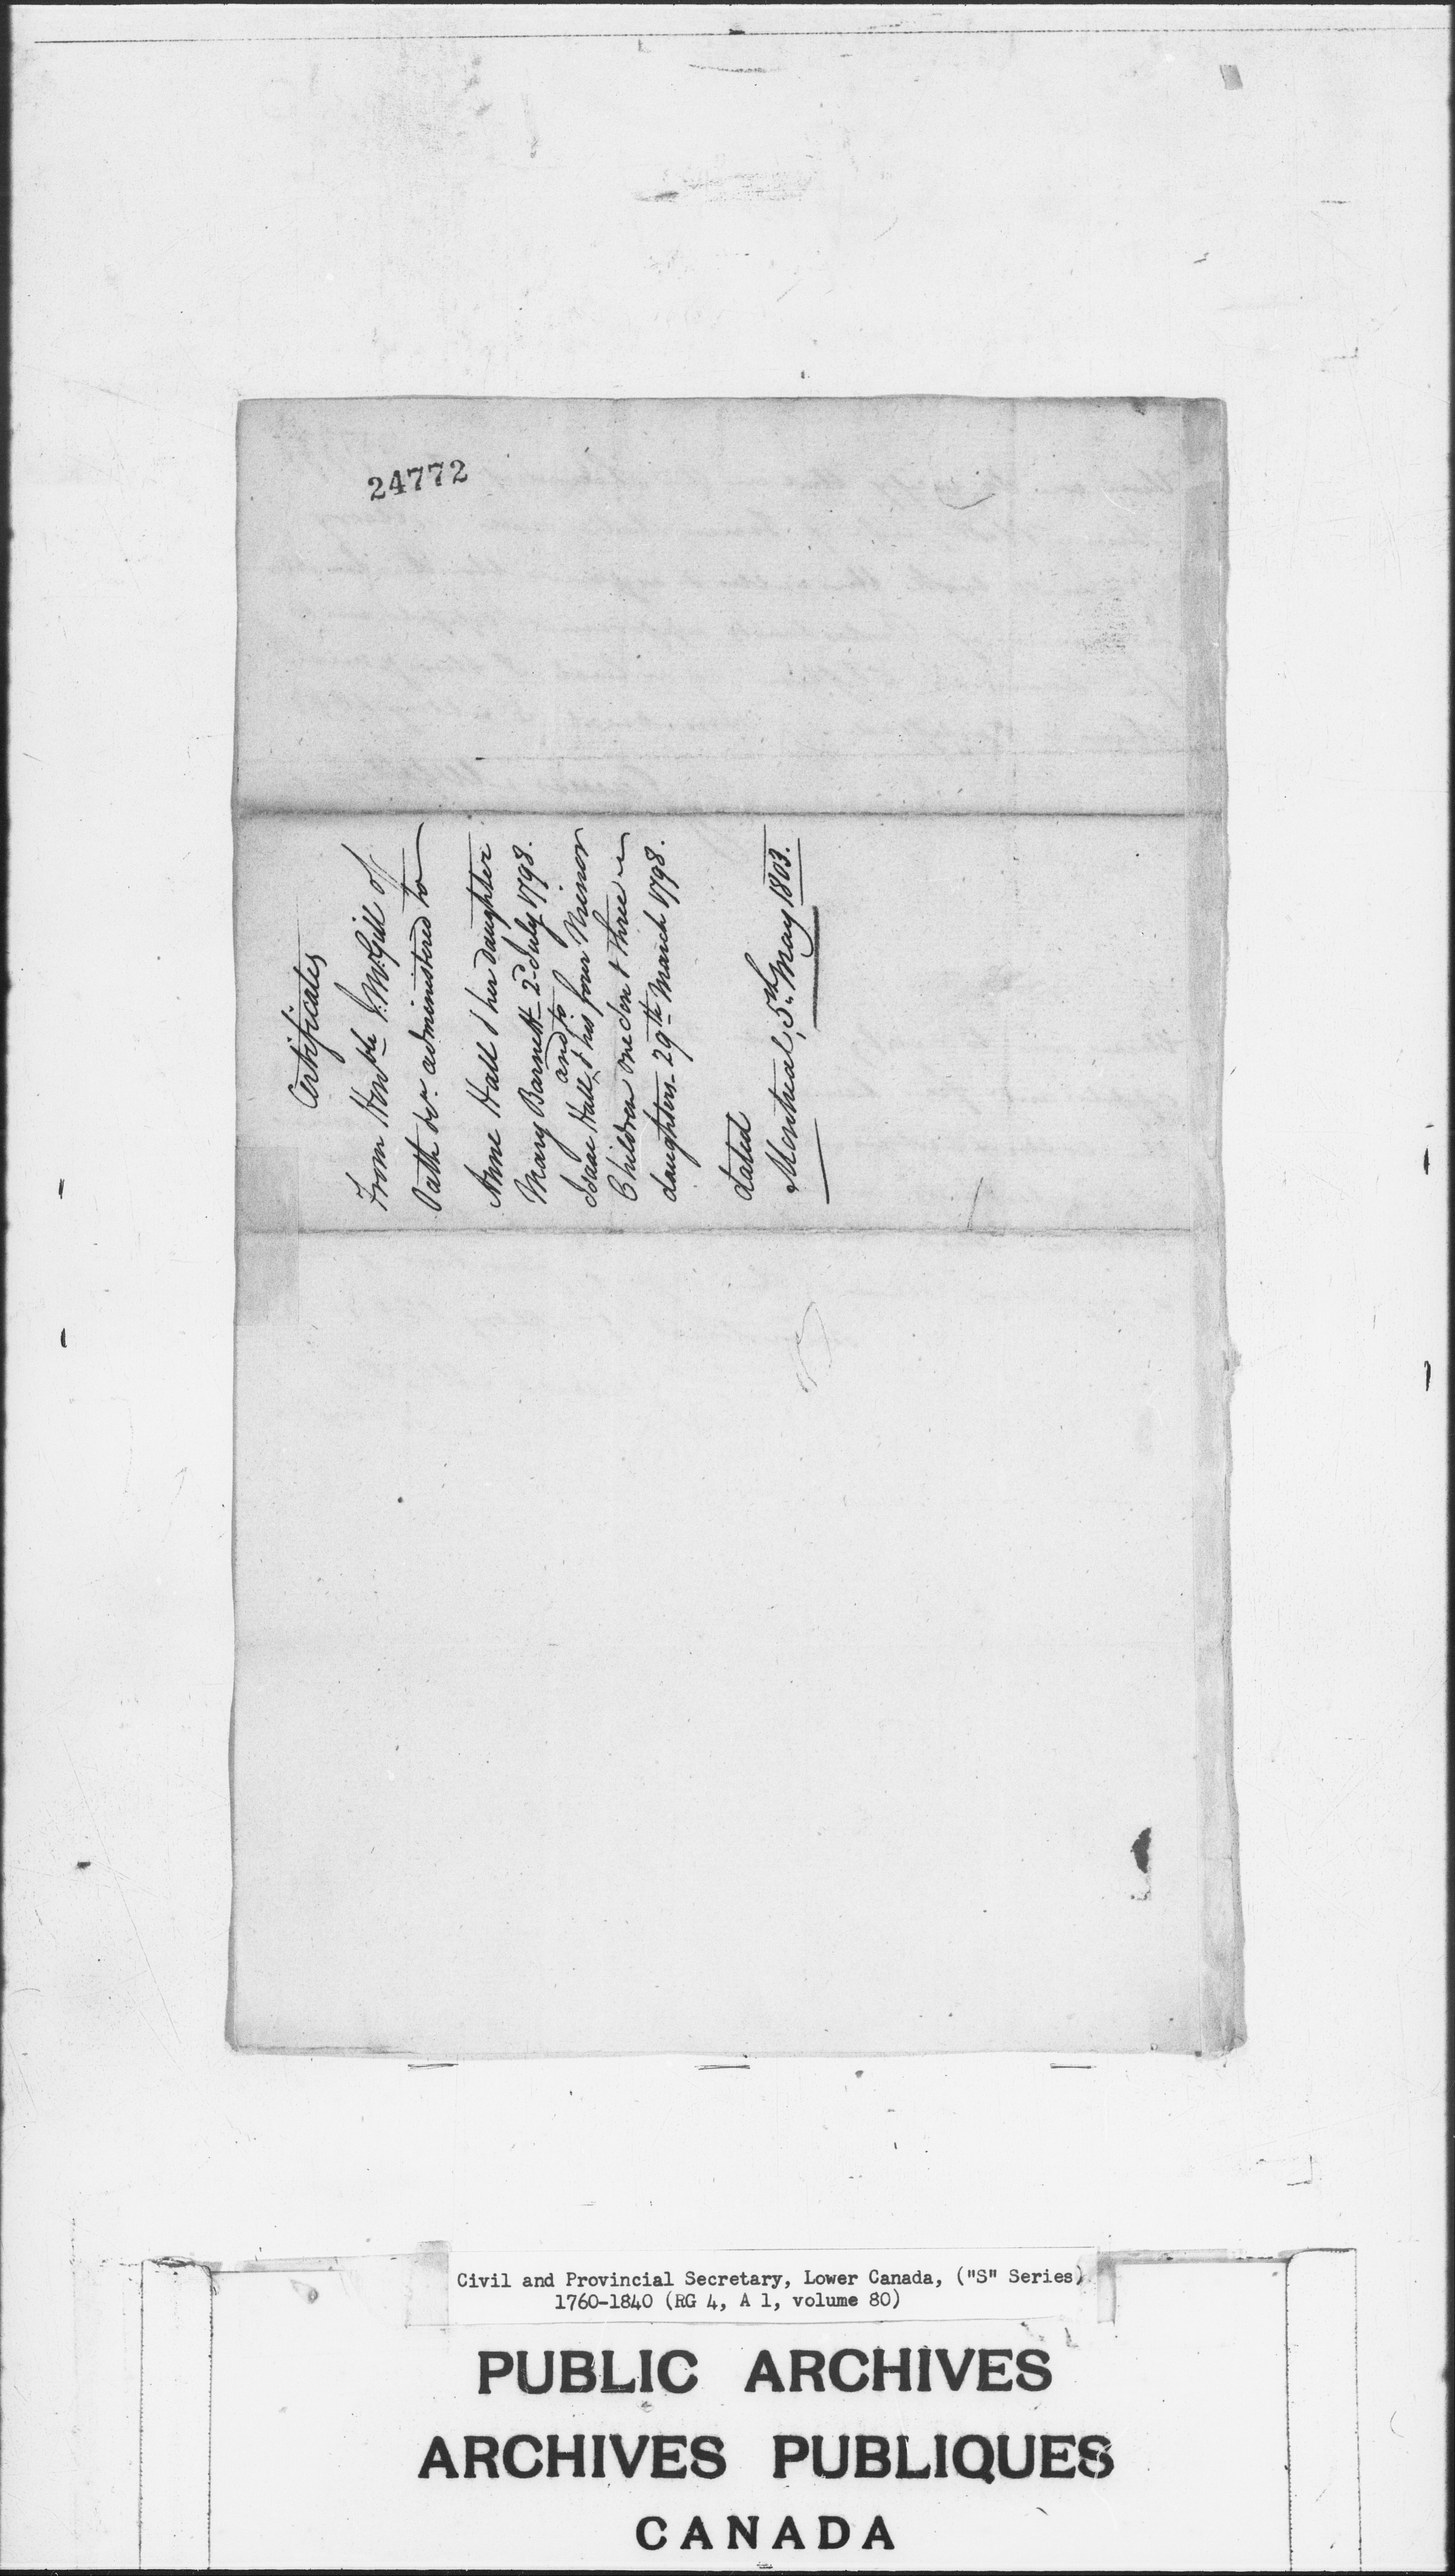 24772
Certificates
From Honble J. McGill of
Oath &c. administered to
Anne Hall & her daughter
Mary Barnett 2d July 1798.
and to
Isaac Hall & his four Minor
Children one Son & three
daughters 29th March 1798.
dated
Montreal, 5th May 1803.
Civil and Provincial Secretary, Lower Canada, ("S" Series)
1760-1840 (RG 4, A 1, volume 80)
PUBLIC ARCHIVES
ARCHIVES PUBLIQUES
CANADA